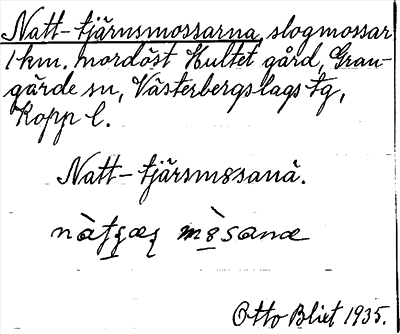 Natt-tjärnsmossarna, slogmossar
1 km. nordöst Hultet gård, Gran-
gärde sn, Västerbergslags tg,
Kopp. l.
Natt-tjärsmossanä.
Otto Blixt 1935.